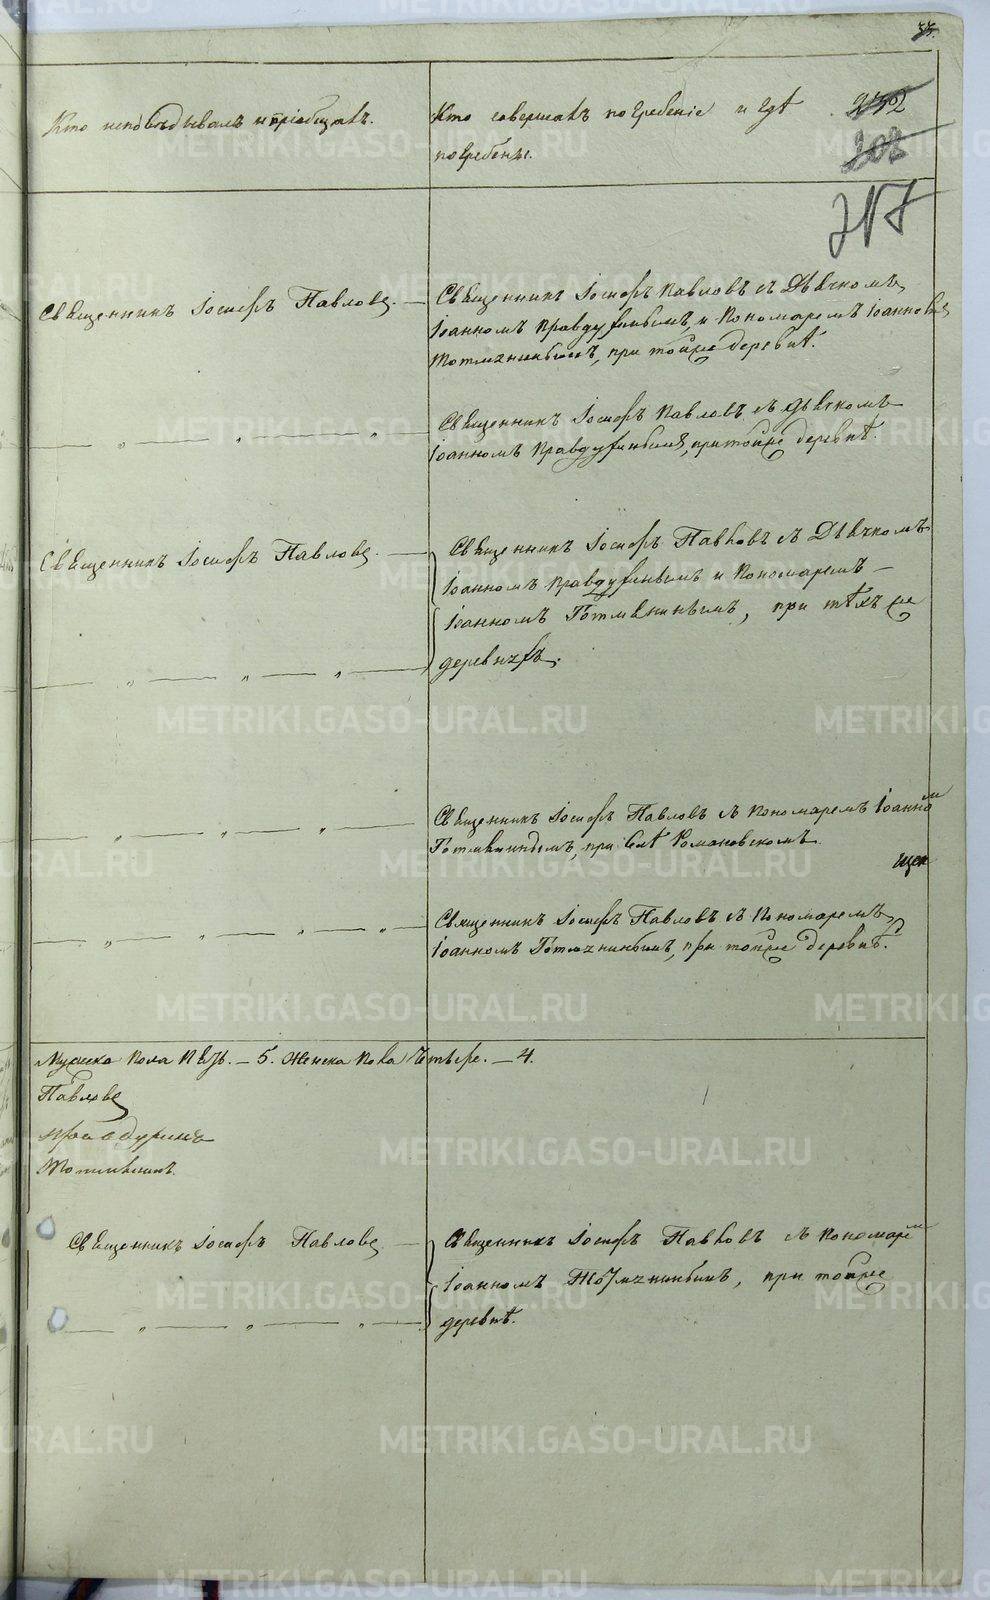 Кто исповѣдывалъ и пріобщалъ.
Кто совершалъ погребеніе и гдѣ
погребены.
2302
202
217
Священникъ Іосифъ Павловъ. —
Священникъ Іосифъ Павловъ съ Дьячкомъ
Іоанномъ Правдухинымъ, и Пономаремъ Іоанномъ
Тотмянинымъ, при тойже деревнѣ.
— „ — „ — „ —
Священникъ Іосифъ Павловъ съ дьячкомъ
Іоанномъ Правдухинымъ, при тойже деревнѣ.
Священникъ Іосифъ Павловъ. —
Священникъ Іосифъ Павловъ съ Дьячкомъ
Іоанномъ Правдухинымъ и Пономаремъ —
Іоанномъ Тотмянинымъ, при тѣхъ же
деревняхъ.
— „ — „ — „ —
— „ — „ — „ —
Священникъ Іосифъ Павловъ съ Пономаремъ Іоанном
Тотмянинымъ, при Селѣ Романовскомъ.
— „ — „ — „ — „ —
Священникъ Іосифъ Павловъ съ Пономаремъ
Іоанномъ Тотмянинымъ, при тойже деревнѣ.
Мужеска пола пять. — 5. Женска пола четыре. — 4.
Павловъ
Правдухинъ
Тотмянинъ
Священникъ Іосифъ Павловъ —
Священникъ Іосифъ Павловъ съ Пономарем
Іоанномъ Тотмянинымъ, при тойже
деревнѣ.
— „ — „ — „ —
METRIKI.GASO-URAL.RU